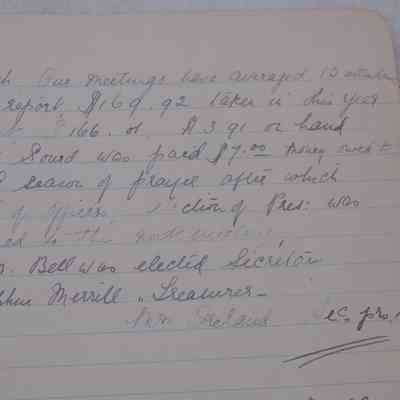 Our meetings have averaged 13
report, $169.92 taken in this year
$166.01. $3.91 on hand
Sound was paid $7.00 money owed
season of prayer after which
of officers. of Pres. was
to the
Bell was elected Sicretory
Merrill " Treasurer -
Ireland Sec. pro.